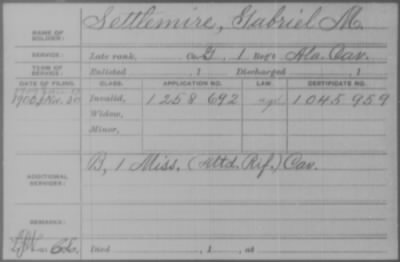 NAME OF SOLDIER: Settlemire, Gabriel M.
SERVICE: Late rank, Co. G, 1 Reg't Ala. Cav.
TERM OF SERVICE: Enlisted , 1 Discharged , 1
DATE OF FILING. CLASS. APPLICATION NO. LAW. CERTIFICATE NO.
1900, Nov. 20 Invalid, 1258 692 1045 959
Widow,
Minor,
ADDITIONAL SERVICES: B, 1 Miss. (Mtd. Rif.) Cav.
REMARKS:
Died , 1 , at